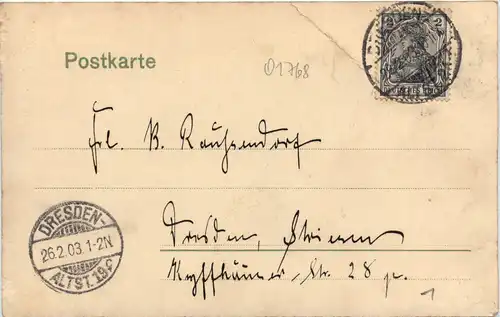 Postkarte
01768
DRESDEN
2 2
Frl. K. Rauhendorf
DRESDEN-
26.2.03.1-2N
ALTST.19c
Dresden, Striesen
Kyffhäuser Str. 28 p.
1